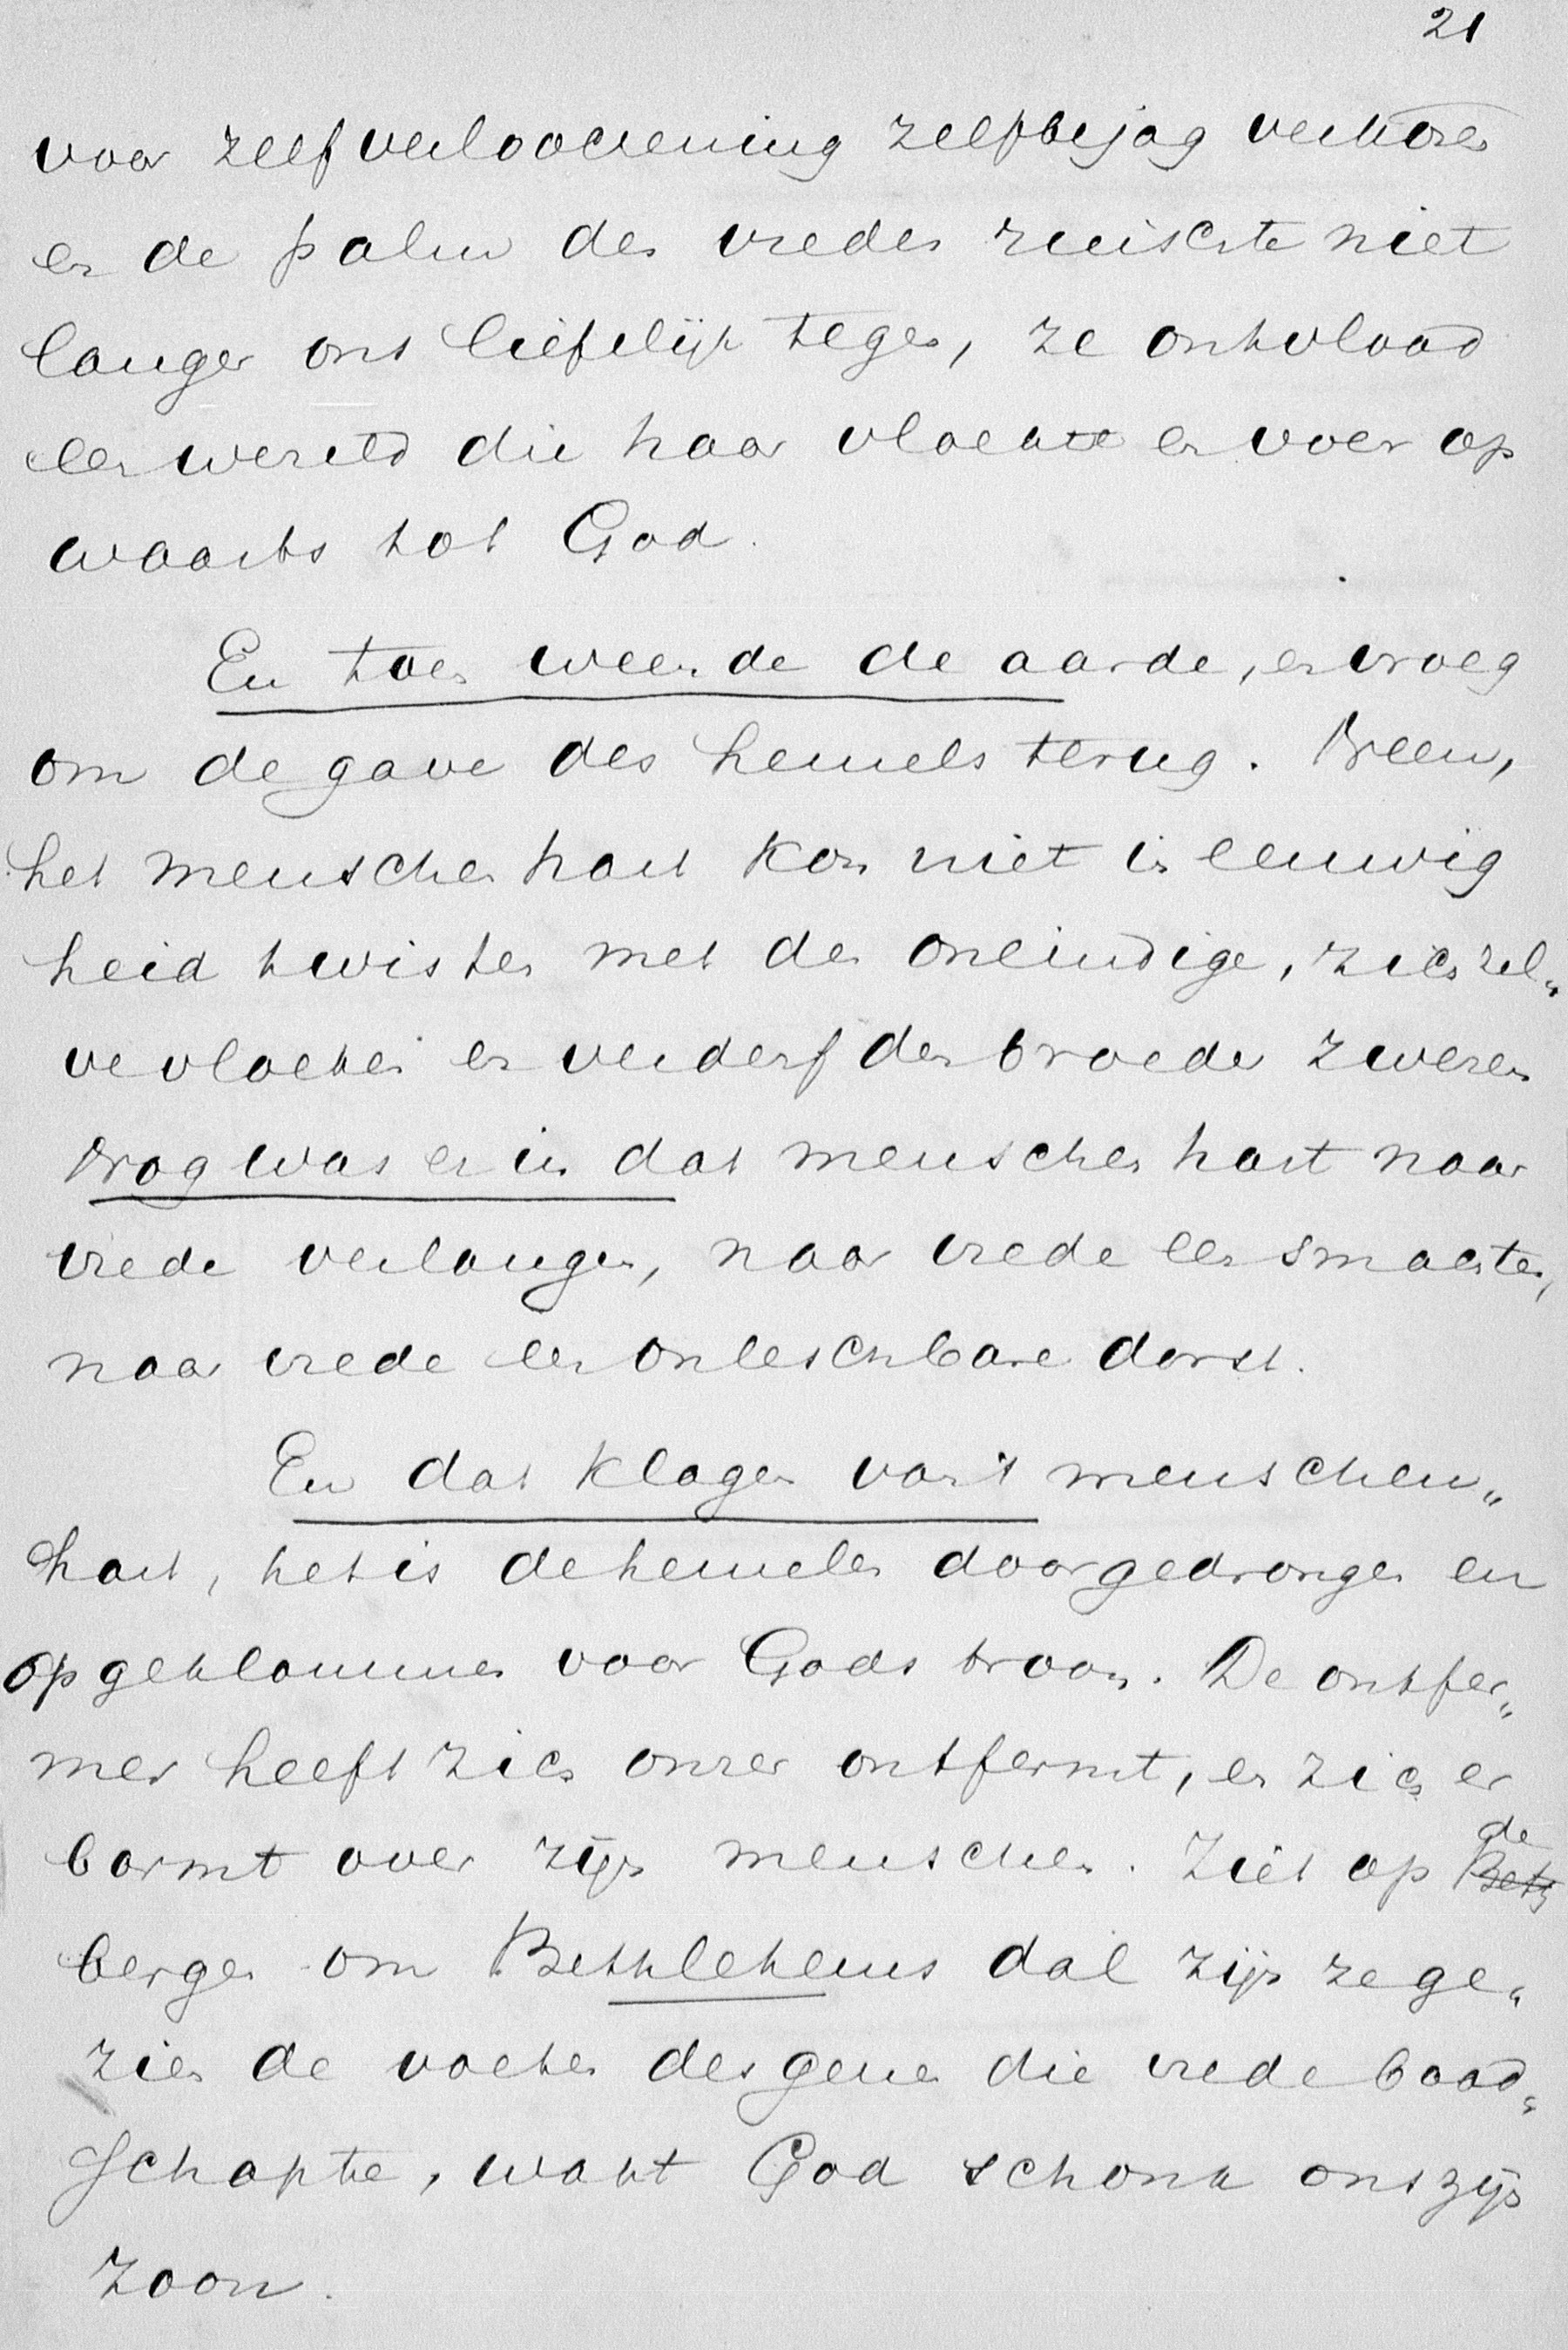 21
voor zelfverloochening zelfbejag verkoren
en de palm des vredes ruischte niet
langer ons liefelijk tegen, ze ontvlood
een wereld die haar vloekte en voer op
waarts tot God.
En toen weende de aarde, en vroeg
om de gave des hemels terug. Neen,
het menschen hart kon niet in eeuwig
heid twisten met den oneindige, zich zel„
ve vloeken en verderf den broeder zweren
Nog was er in dat menschen hart naar
vrede verlangen, naar vrede een smachten,
naar vrede een onleschbare dorst.
En dat klagen van 't menschen„
hart, het is de hemelen doorgedrongen en
opgeklommen voor Gods troon. De ontfer„
mer heeft zich onzer ontfermt, en zich er
barmt over zijn menschen. Ziet op de Beth
bergen om Bethlehems dal zijn ze ge„
zien de voeten desgenen die vrede bood„
schapte, want God schonk ons zijn
zoon.